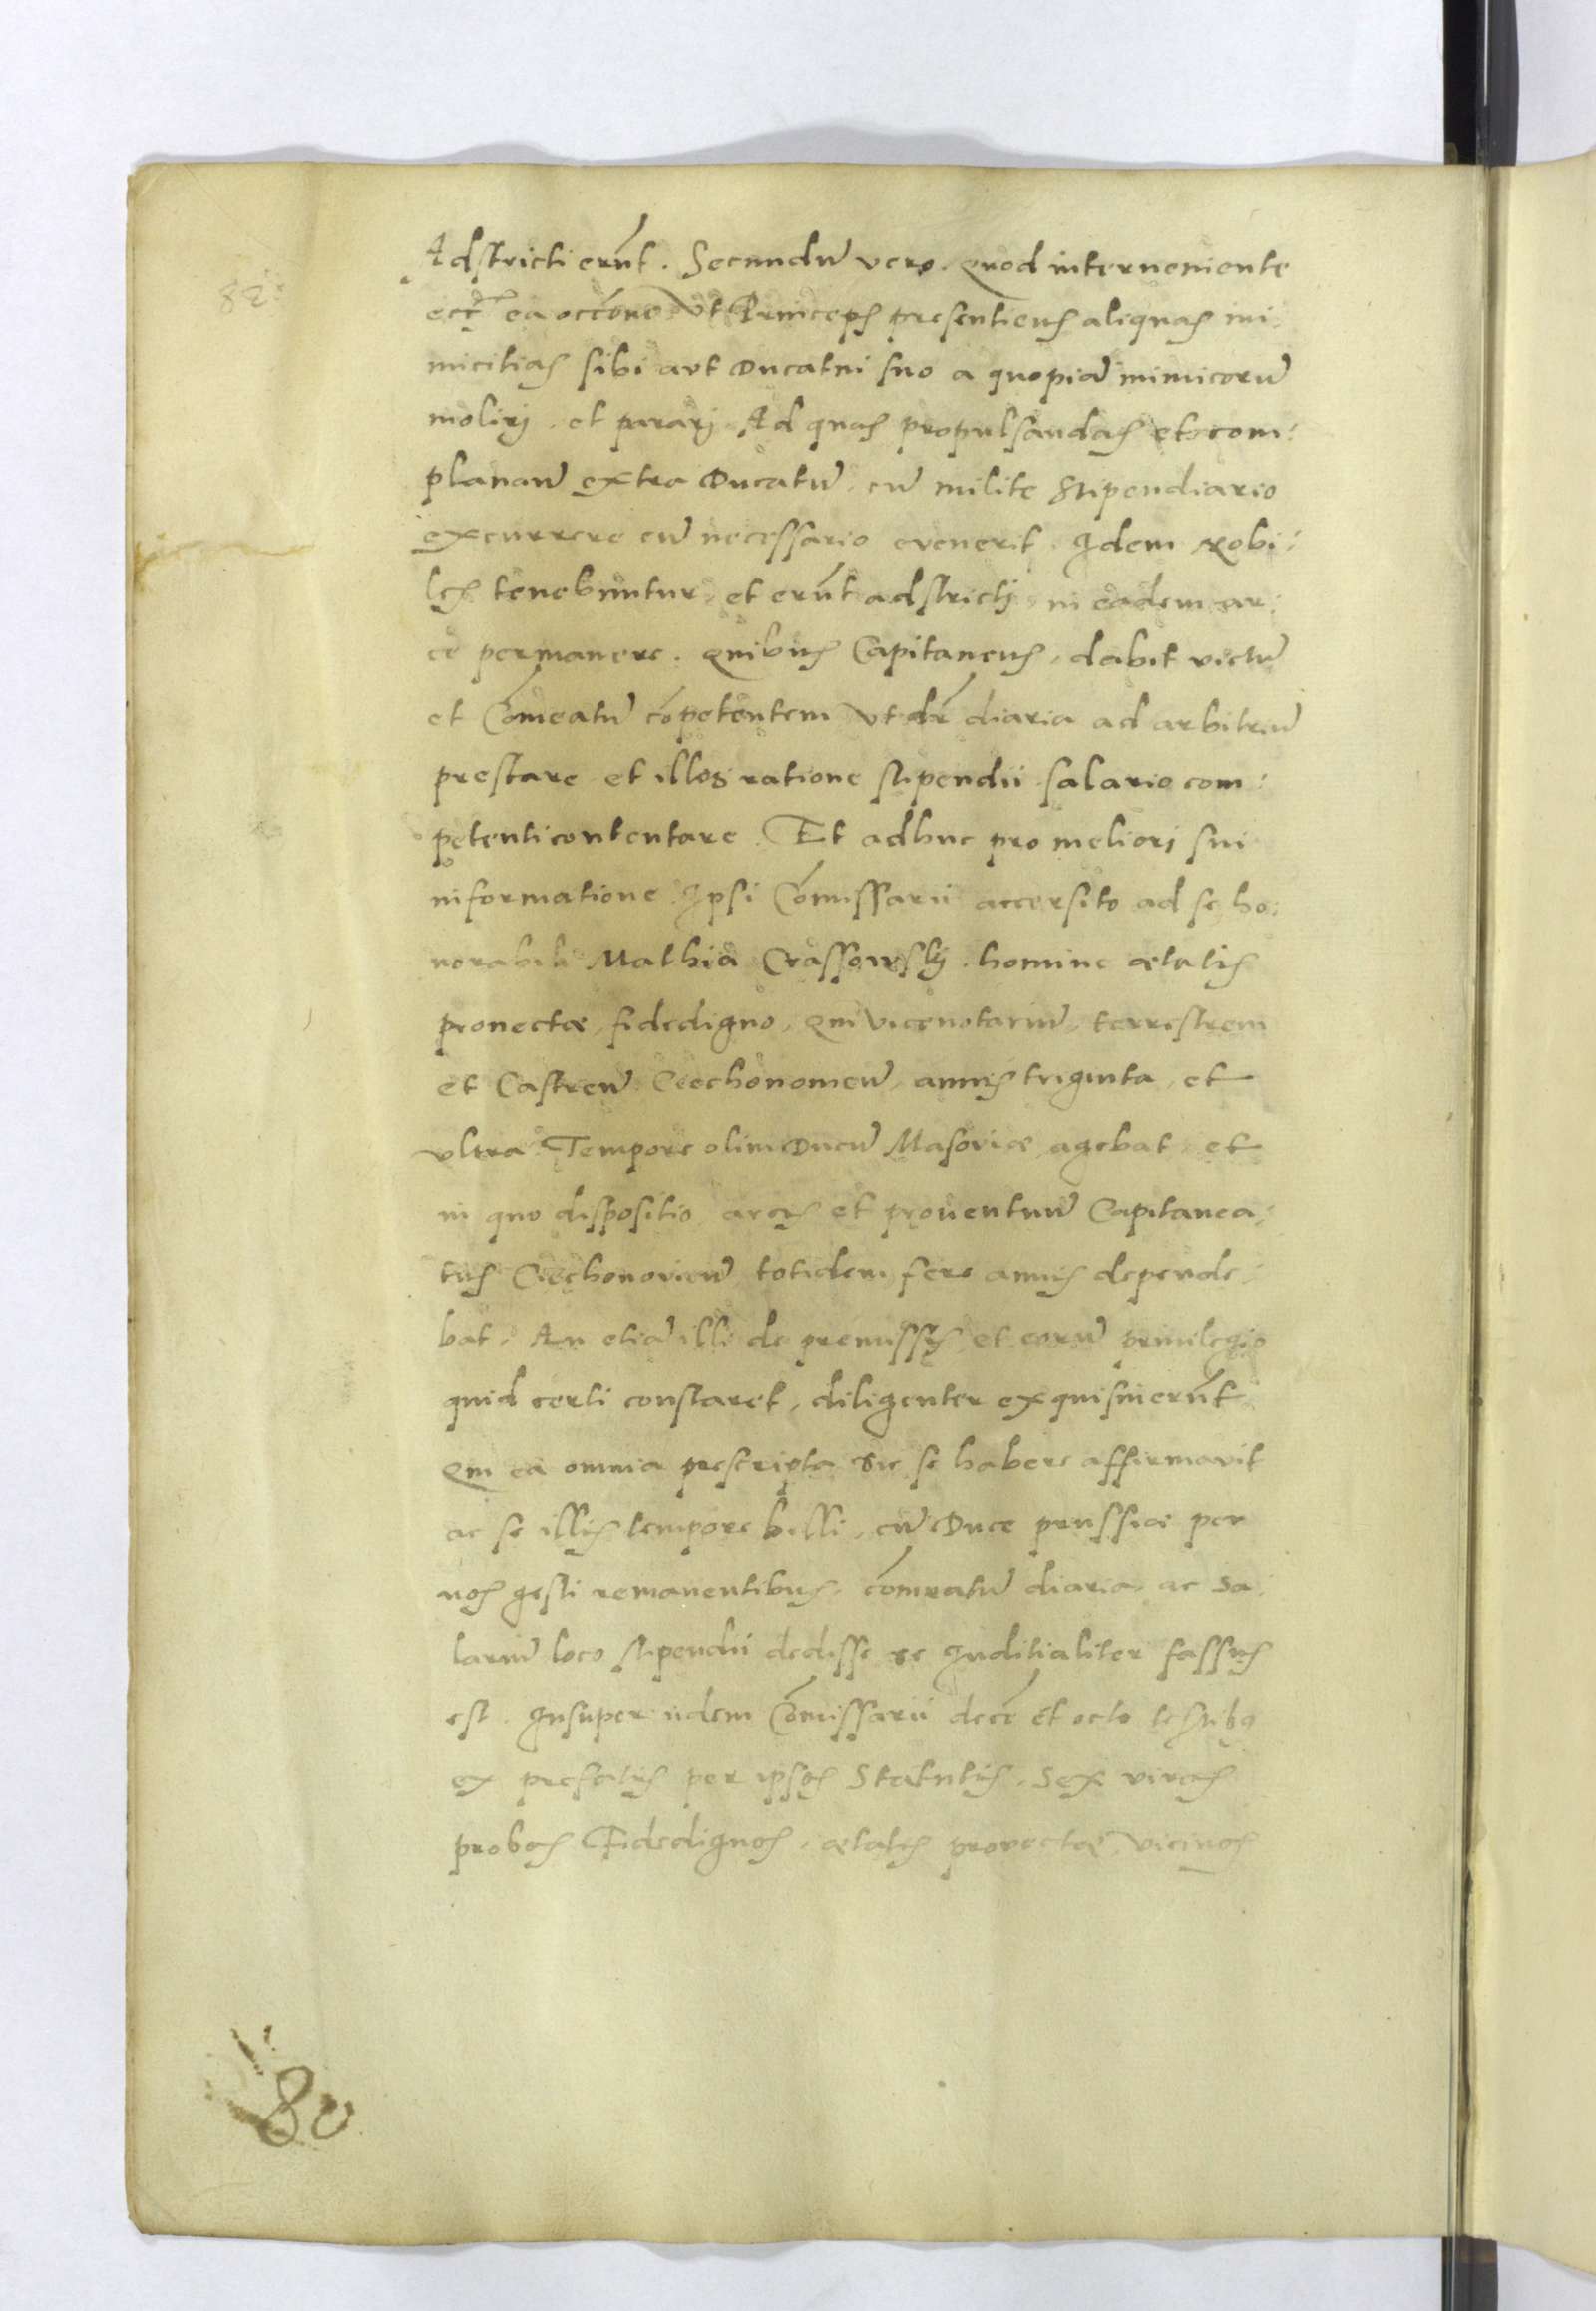 Adstricti erūt. Secundū vero. Quod interueniente
ea occōne Vt Princeps presentiens aliquas ini,
micitias sibi aut Ducatui suo a quopiā inimicorū
molirj. et pararj Ad quas propulsandas et com:
planan̄ extra Ducatū, cū milite Stipendiario
excurrere eū necessario evenerit. Idem Nobi:
les tenebuntur, et erūt adstrictj, in eadem ar:
ce permanere. Quibus Capitaneus, dabit victū
et Cōmeatū cōpetentem Vt dr̄ diaria ad arbitriū
prestare et illos ratione stipendii salario com:
petenti contentare. Et adhuc pro meliorj sui
informatione Ipsi Cōmissarii accersito ad se ho:
norabili Mathia Crassowskj. homine ætatis
prouectæ, fidedigno, Qui Vicenotariū, terrestrem
et Castren̄ Ciechonomen̄, annis triginta, et
vltra Tempore olim Ducū Masoviæ agebat et
in quo dispositio, arcis et prouentuū Capitanea:
tus Ciechonovien̄ totidem fere annis depende:
bat. An etiā illi de premissis et eorū priuilegio
quid certi constaret, diligenter exquisiuerūt
Qui ea omnia prescripta sic se habere affirmavit
ac se illis tempore belli, cū Duce prussiæ per
nos gesti remanentibus, cōmeatū diaria, ac Sa:
lariū loco stipendii dedisse se Iuditialiter fassus
est. Insuper iidem Cōmissarii decē et octo testibq
ex prefatis per ipsos Statutis. Sex viros
probos Fidedignos, ætatis provectæ, vicinos
80